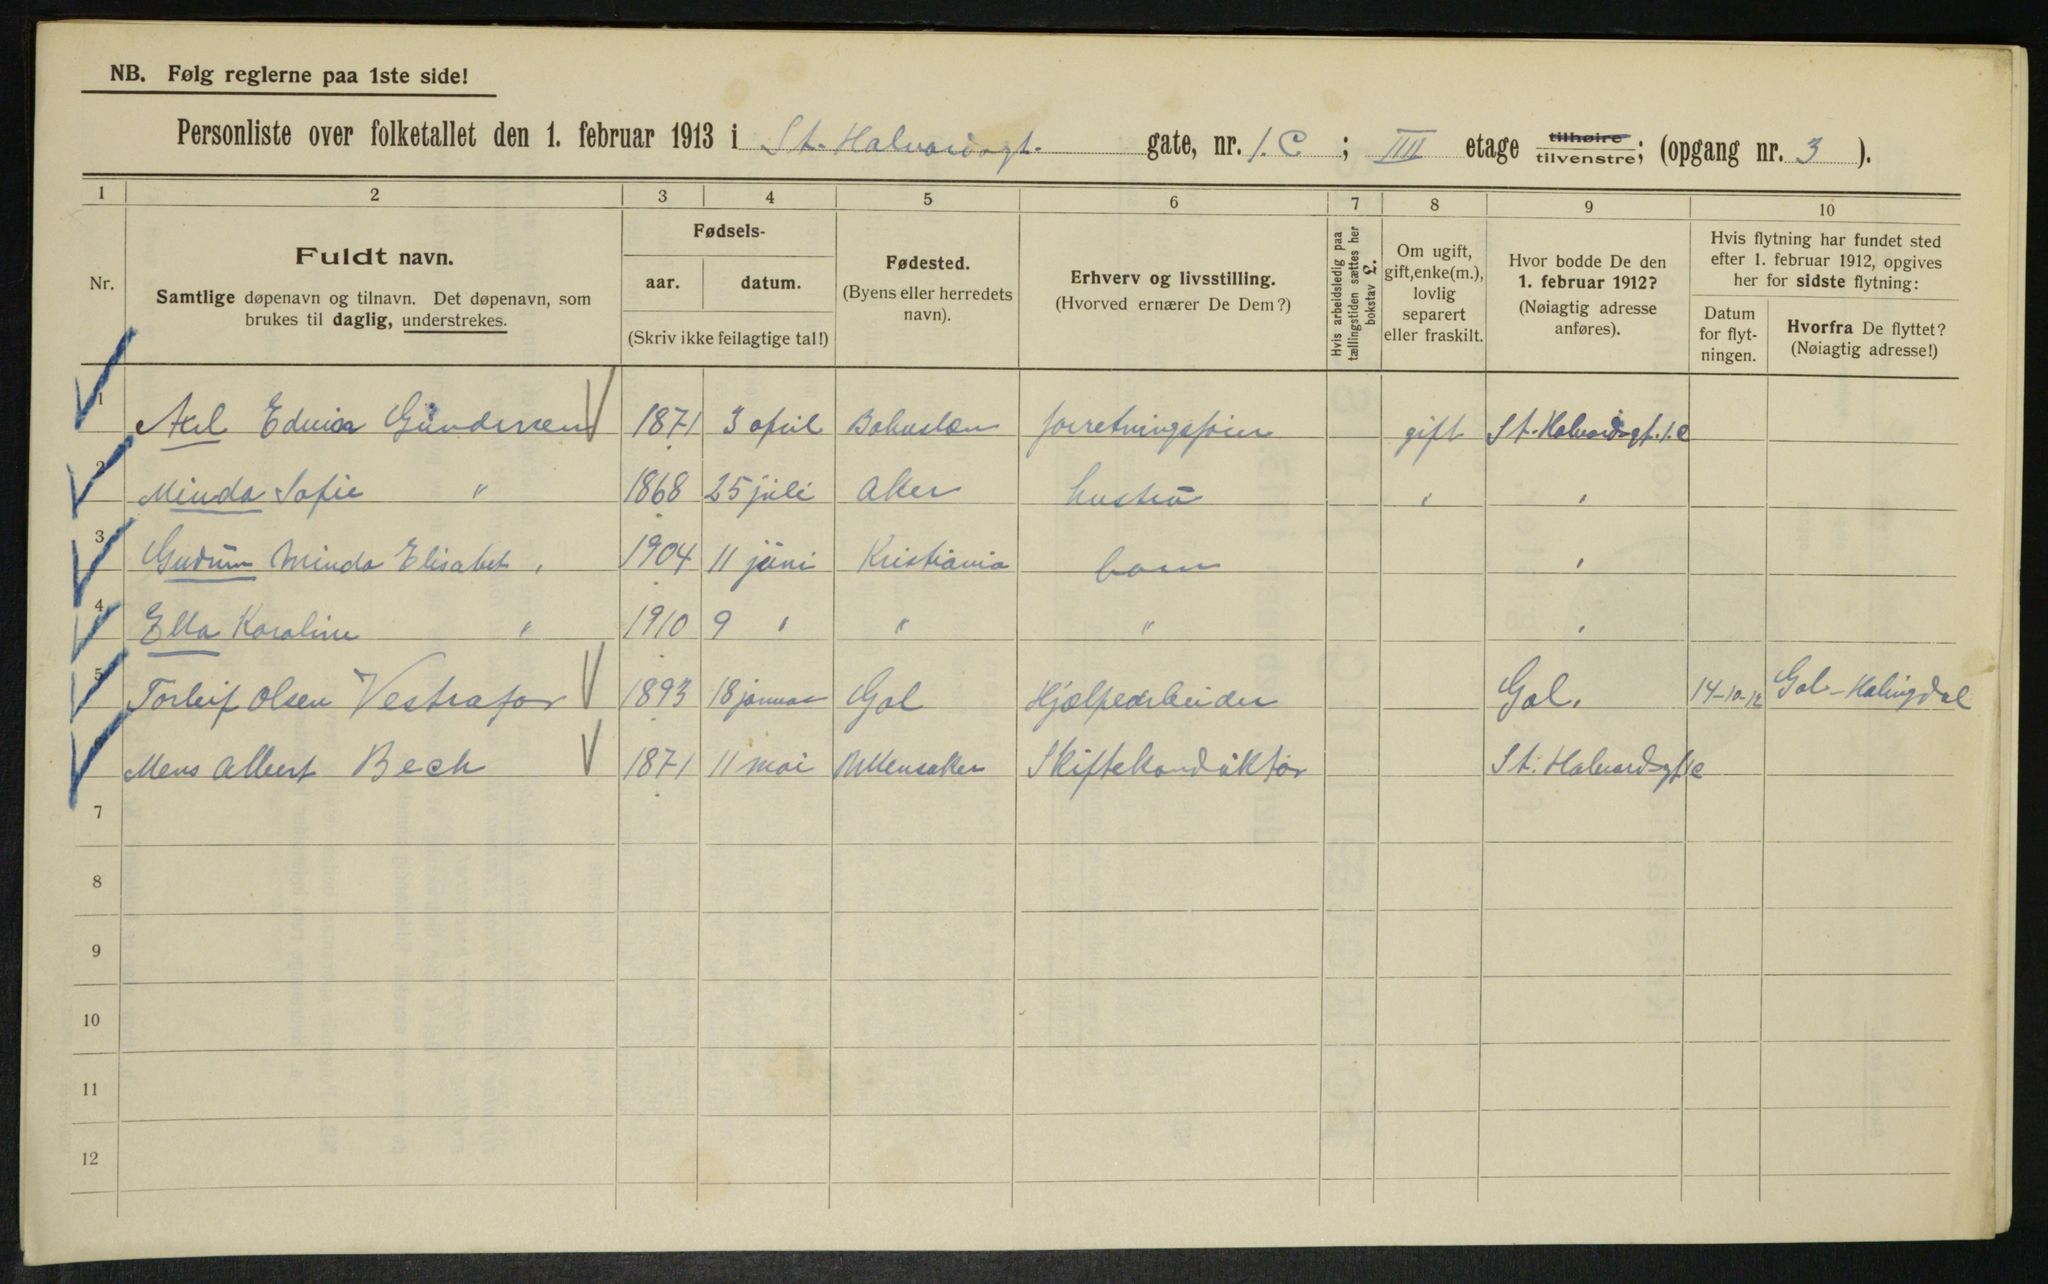 NB. Følg reglerne paa 1ste side!
Personliste over folketallet den 1. februar 1913 i St. Halvardsgt. gate, nr. 1.C ; IIII etage tilhøire tilvenstre; (opgang nr. 3 ).
1 2 3 4 5 6 7 8 9 10
Nr.
Fuldt navn.
Samtlige døpenavn og tilnavn. Det døpenavn, som
brukes til daglig, understrekes.
Fødsels-
aar. datum.
(Skriv ikke feilagtige tal!)
Fødested.
(Byens eller herredets
navn).
Erhverv og livsstilling.
(Hvorved ernærer De Dem?)
Hvis arbeidsledig paa
tællingstiden sættes her
bokstav £.
Om ugift,
gift, enke(m.),
lovlig
separert
eller fraskilt.
Hvor bodde De den
1. februar 1912?
(Nøiagtig adresse
anføres).
Hvis flytning har fundet sted
efter 1. februar 1912, opgives
her for sidste flytning:
Datum
for flyt-
ningen.
Hvorfra De flyttet?
(Nøiagtig adresse!)
1 Axel Edvin Gundersen 1871 3 april Bohuslæn forretningsfører gift St. Halvardsgt. 1.c
2 Minda Sofie " 1868 25 juli Aker hustru " "
3 Gudrun Minda Elisabet " 1904 11 juni Kristiania barn "
4 Ella Karoline " 1910 9 " " " "
5 Torleif Olsen Vestrafor 1893 18 januar Gol Hjælpearbeider Gol. 14-10-12 Gol-Halingdal
Mens Albert Bech 1871 11 mai Ullensaker Skiftekonduktør St. Halvardsgt 1c
7
8
9
10
11
12